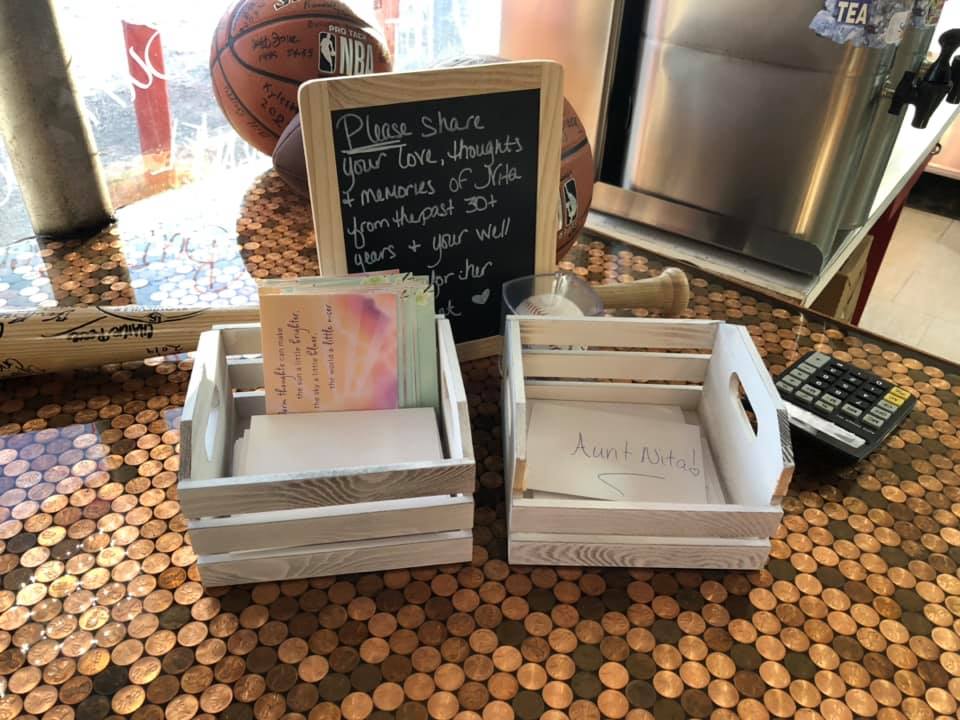 PRO TACK
NBA
TEA
Please share
your love, thoughts
+ memories of Nita
from the past 30+
years + your well
for her
thoughts can make
the sun a little brighter,
the sky a little bluer,
the world a little nicer
Aunt Nita!